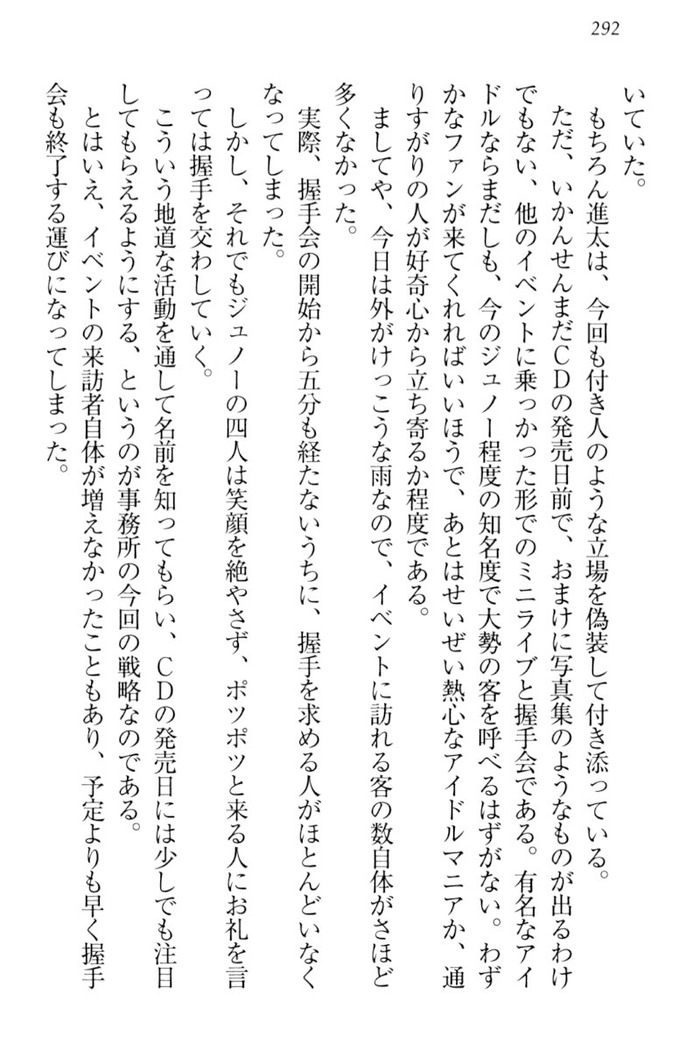 292
いていた。
　もちろん進太は、今回も付き人のような立場を偽装して付き添っている。
　ただ、いかんせんまだＣＤの発売日前で、おまけに写真集のようなものが出るわけ
でもない、他のイベントに乗っかった形でのミニライブと握手会である。有名なアイ
ドルならまだしも、今のジュノー程度の知名度で大勢の客を呼べるはずがない。わず
かなファンが来てくれればいいほうで、あとはせいぜい熱心なアイドルマニアか、通
りすがりの人が好奇心から立ち寄るか程度である。
　ましてや、今日は外がけっこうな雨なので、イベントに訪れる客の数自体がさほど
多くなかった。
　実際、握手会の開始から五分も経たないうちに、握手を求める人がほとんどいなく
なってしまった。
　しかし、それでもジュノーの四人は笑顔を絶やさず、ポツポツと来る人にお礼を言
っては握手を交わしていく。
　こういう地道な活動を通して名前を知ってもらい、ＣＤの発売日には少しでも注目
してもらえるようにする、というのが事務所の今回の戦略なのである。
　とはいえ、イベントの来訪者自体が増えなかったこともあり、予定よりも早く握手
会も終了する運びになってしまった。